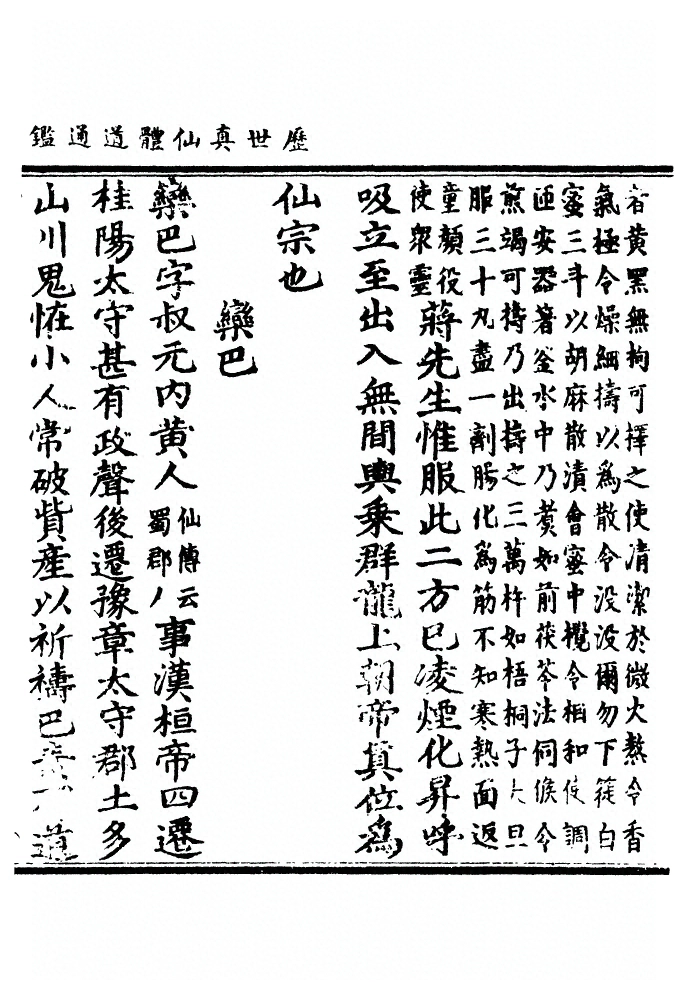 歷世真仙體道通鑑
若黃黑無拘可擇之使清潔於微火熬令香
氣極令燥細擣以為散令沒沒爾勿下篵白
蜜三斗以胡麻散漬會蜜中攪令相和使調
匝安器著釜水中乃煑如前茯苓法伺候令
煎竭可擣乃出擣之三萬杵如梧桐子大旦
服三十丸盡一劑腸化為筋不知寒熱面返
童顏役
使眾靈蔣先生惟服此二方巳凌煙化昇呼
吸立至出入無間輿乘群龍上朝帝真位為
仙宗也
欒巴
欒巴字叔元內黃人仙傳云
蜀郡人事漢桓帝四遷
桂陽太守甚有政聲後遷豫章太守郡土多
山川鬼恠小人常破貲產以祈禱巴素 道